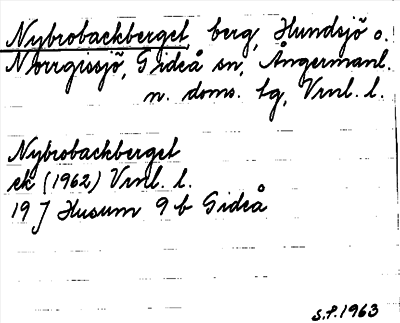 Nybrobackberget, berg, Hundsjö o.
Norrgissjö, Gideå sn, Ångermanl.
n. doms. tg, Vrnl. l.
Nybrobackberget
ek (1962) Vrnl. l.
19 J Husum 9 b Gideå
S.P. 1963